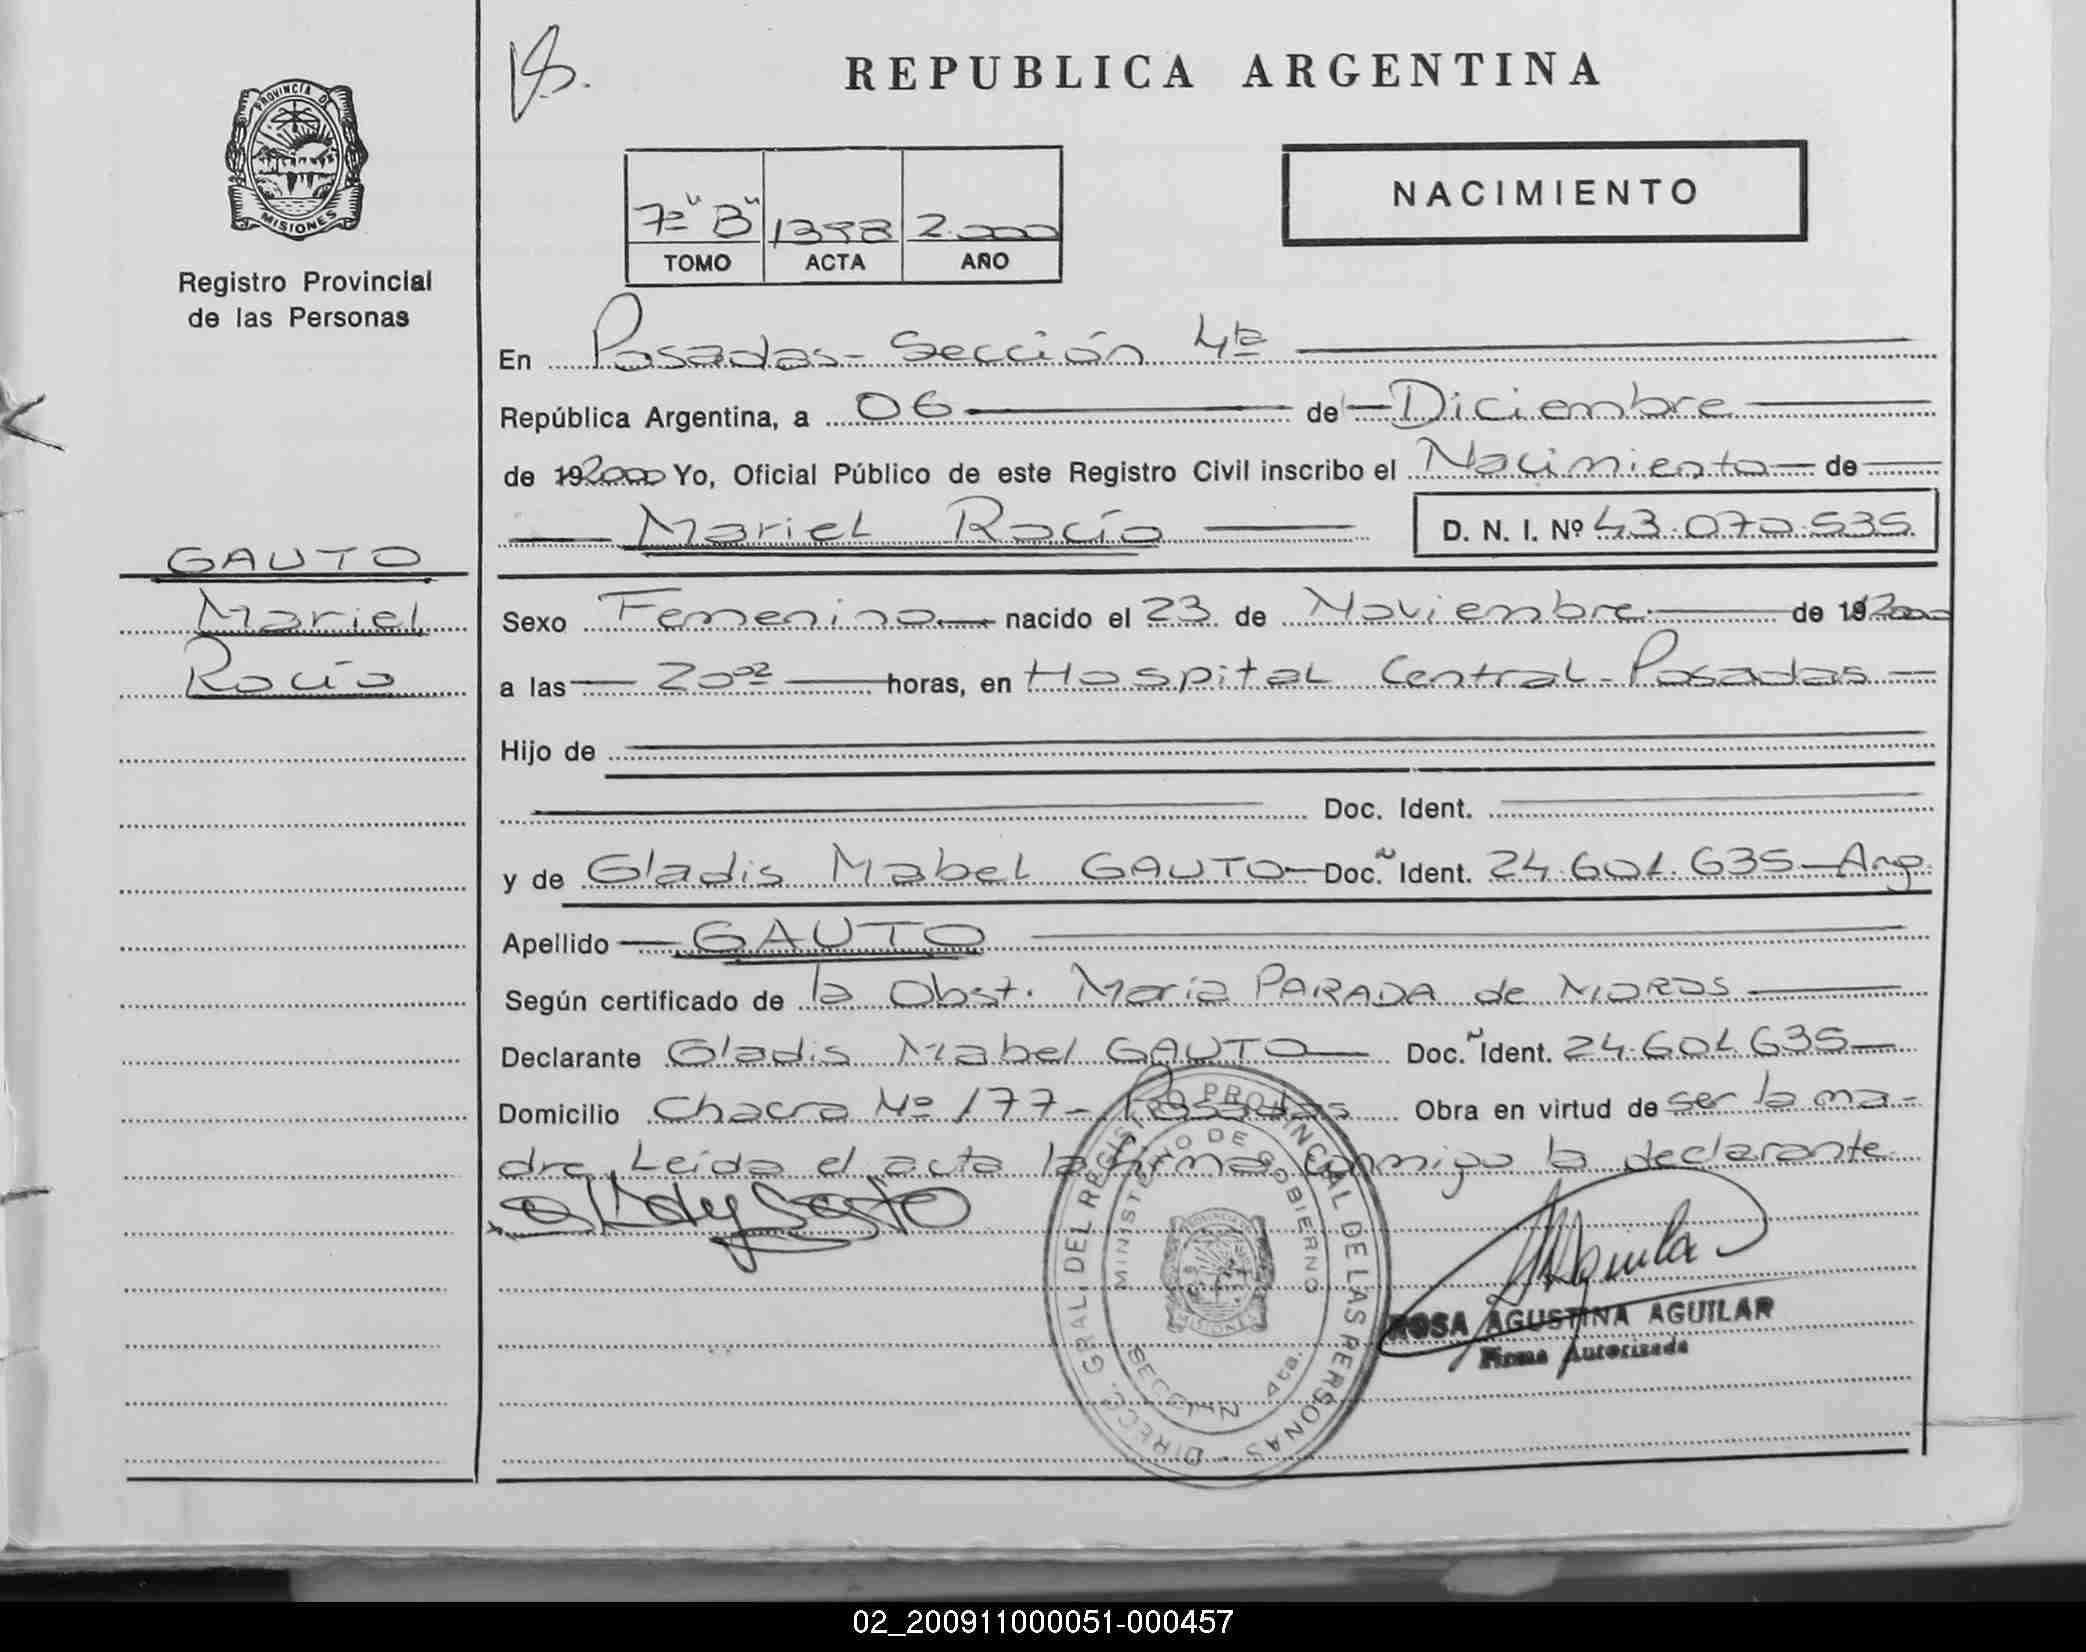 REPUBLICA ARGENTINA
PROVINCIA DE
MISIONES
Registro Provincial
de las Personas
NACIMIENTO
7º "B" 1398 2.000
TOMO ACTA AÑO
En Posadas - Sección 4ta
República Argentina, a 06 de Diciembre
de 192000 Yo, Oficial Público de este Registro Civil inscribo el Nacimiento de
Mariel Rocío D. N. I. Nº 43.070.535
GAUTO
Mariel
Rocío
Sexo Femenino nacido el 23 de Noviembre de 192000
a las 20 02 horas, en Hospital Central - Posadas
Hijo de
Doc. Ident.
y de Gladis Mabel GAUTO Doc. Ident. 24.601.635 - Arg.
Apellido GAUTO
Según certificado de la Obst. María PARADA de MORAS
Declarante Gladis Mabel GAUTO Doc. Ident. 24.601.635
Domicilio Chacra Nº 177 - Posadas Obra en virtud de ser la ma-
dre. Leída el acta la firma conmigo la declarante
DIRECC. GRAL. DEL REGISTRO PROVINCIAL DE LAS PERSONAS
MINISTERIO DE GOBIERNO
PROVINCIA DE
MISIONES
SECCION 4ta.
Aguilar
ROSA AGUSTINA AGUILAR
Firma Autorizada
02_200911000051-000457